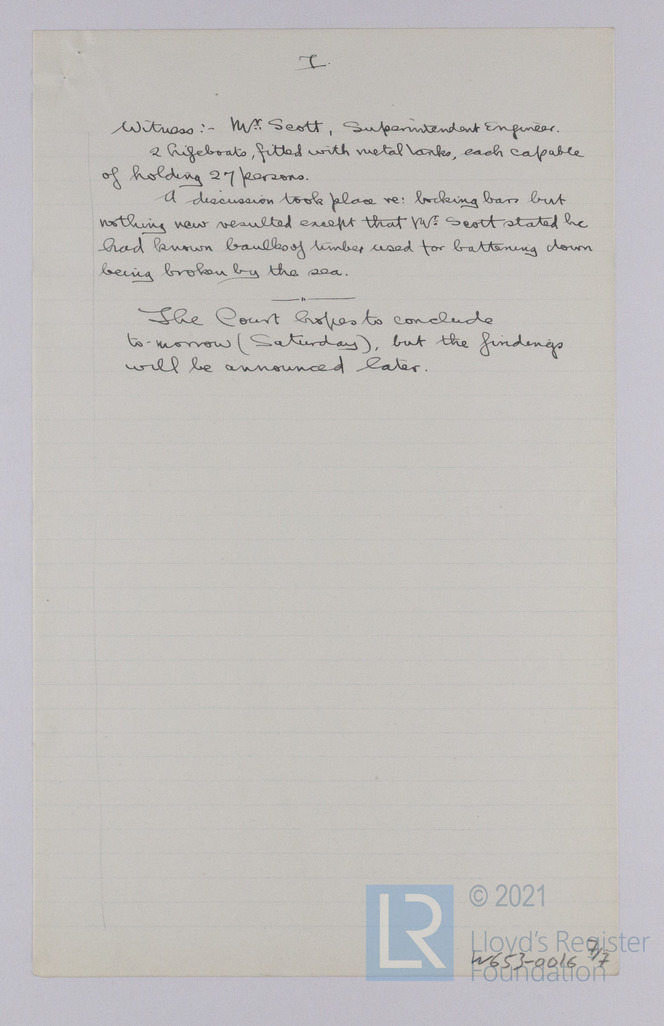 7.
Witness:- Mr. Scott, Superintendent Engineer.
2 lifeboats, fitted with metal tanks, each capable
of holding 27 persons.
A discussion took place re: locking bars but
nothing new resulted except that Mr. Scott stated he
had known baulks of timber used for battening down
being broken by the sea.
The Court hopes to conclude
to-morrow (Saturday), but the findings
will be announced later.
LR
© 2021
Lloyd's Register
Foundation
W653-0016 7/7